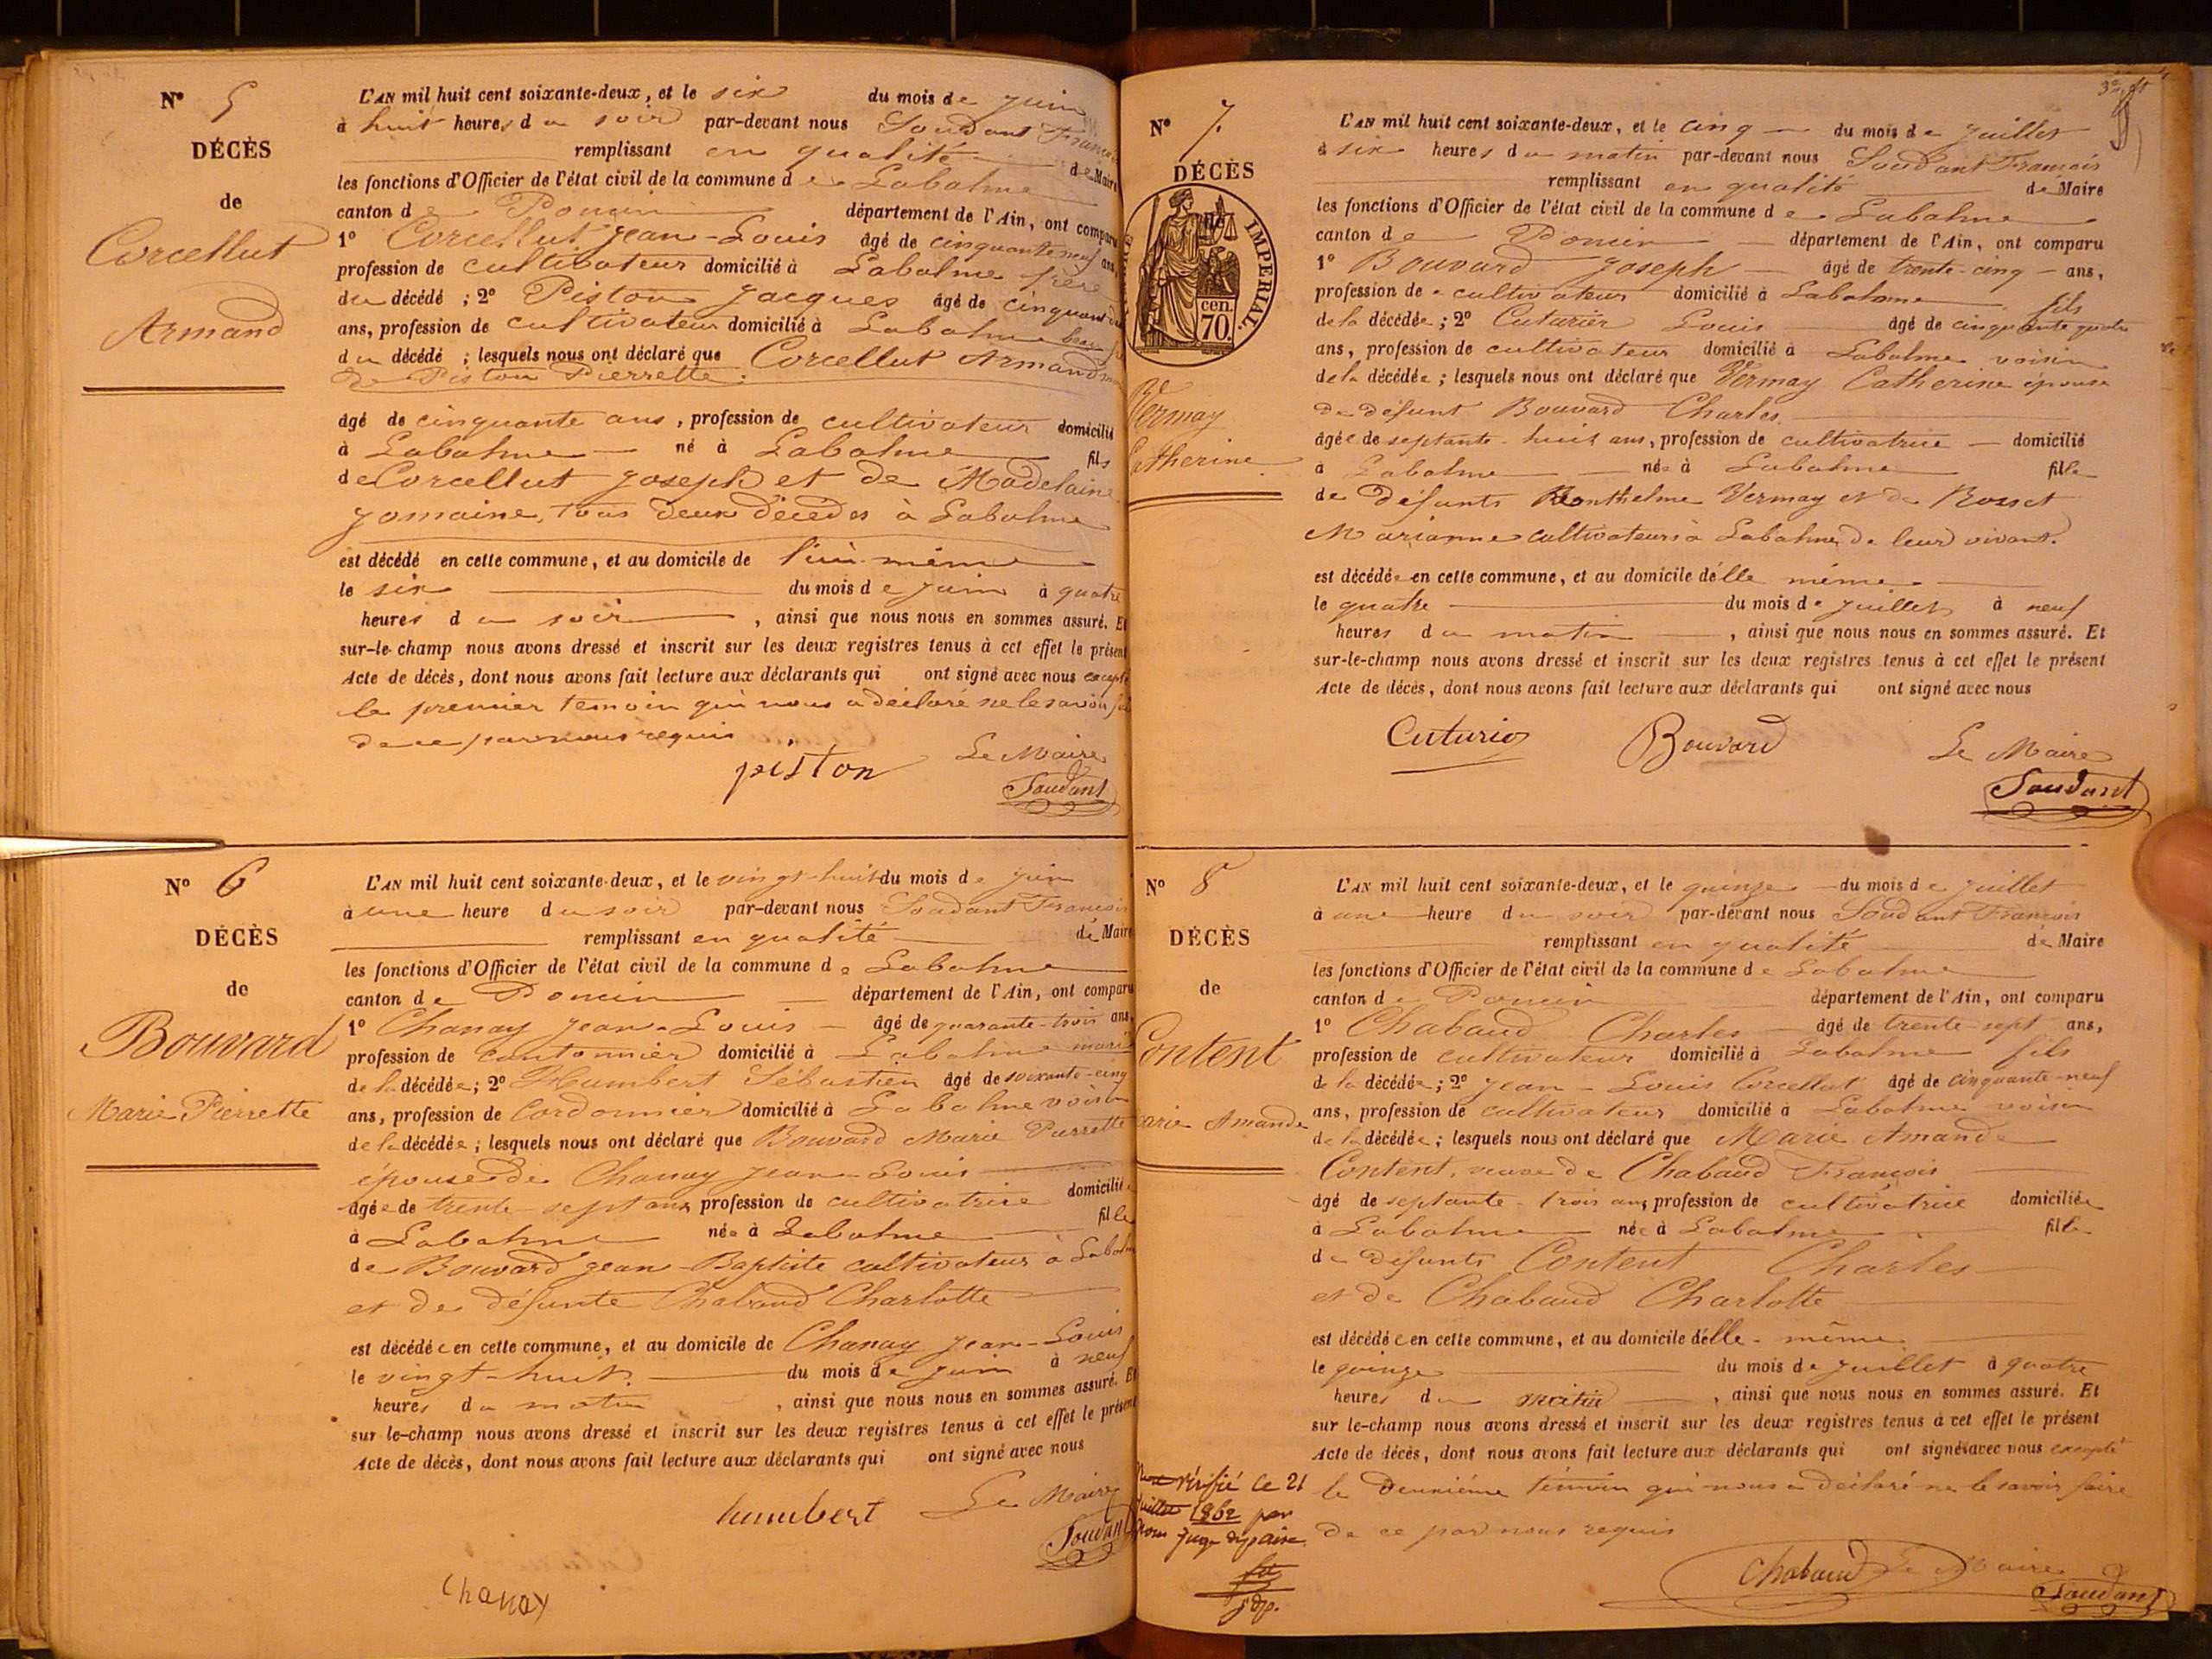 N° 5
DÉCÈS
de
Corcellut
Armand
L'AN mil huit cent soixante-deux, et le six du mois de juin
à huit heures du soir par-devant nous Soudant François
remplissant en qualité de Maire
les fonctions d'Officier de l'état civil de la commune de Labalme
canton de Poncin département de l'Ain, ont comparu
1° Corcellut Jean-Louis âgé de cinquante neuf ans,
profession de cultivateur domicilié à Labalme frère
du décédé ; 2° Piston Jacques âgé de cinquante
ans, profession de cultivateur domicilié à Labalme beau
du décédé ; lesquels nous ont déclaré que Corcellut Armand
de Piston Pierrette
âgé de cinquante ans, profession de cultivateur domicilié
à Labalme né à Labalme fils
de Corcellut Joseph et de Madelaine
Jomaine, tous deux décédés à Labalme
est décédé en cette commune, et au domicile de lui-même
le six du mois de juin à quatre
heures du soir, ainsi que nous nous en sommes assuré. Et
sur-le-champ nous avons dressé et inscrit sur les deux registres tenus à cet effet le présent
Acte de décès, dont nous avons fait lecture aux déclarants qui ont signé avec nous excepté
le premier temoin qui nous a déclaré ne le savoir
de ce par nous requis
piston Le Maire
Soudant
N° 6
DÉCÈS
de
Bouvard
Marie Pierrette
L'AN mil huit cent soixante-deux, et le vingt-huit du mois de juin
à une heure du soir par-devant nous Soudant François
remplissant en qualité de Maire
les fonctions d'Officier de l'état civil de la commune de Labalme
canton de Poncin département de l'Ain, ont comparu
1° Chanay Jean-Louis âgé de quarante-trois ans,
profession de cantonnier domicilié à Labalme mari
de la décédée ; 2° Humbert Sébastien âgé de soixante-cinq
ans, profession de Cordonnier domicilié à Labalme voisin
de la décédée ; lesquels nous ont déclaré que Bouvard Marie Pierrette
épouse de Chanay Jean-Louis
âgée de trente-sept ans, profession de cultivatrice domiciliée
à Labalme née à Labalme fille
de Bouvard Jean-Baptiste cultivateur à Labalme
et de défunte Chabaud Charlotte
est décédée en cette commune, et au domicile de Chanay Jean-Louis
le vingt-huit du mois de juin à neuf
heures du matin, ainsi que nous nous en sommes assuré. Et
sur le-champ nous avons dressé et inscrit sur les deux registres tenus à cet effet le présent
Acte de décès, dont nous avons fait lecture aux déclarants qui ont signé avec nous
humbert Le Maire
Soudant
Chanay
N° 7.
DÉCÈS
IMPERIAL.
70 cen.
Vermay
Catherine
L'AN mil huit cent soixante-deux, et le cinq du mois de juillet
à six heures du matin par-devant nous Soudant François
remplissant en qualité de Maire
les fonctions d'Officier de l'état civil de la commune de Labalme
canton de Poncin département de l'Ain, ont comparu
1° Bouvard Joseph âgé de trente-cinq ans,
profession de cultivateur domicilié à Labalme fils
de la décédée ; 2° Cuturier Louis âgé de cinquante quatre
ans, profession de cultivateur domicilié à Labalme voisin
de la décédée ; lesquels nous ont déclaré que Vermay Catherine épouse
de défunt Bouvard Charles
âgée de septante-huit ans, profession de cultivatrice domicilié
à Labalme née à Labalme fille
de défunts Vermay et de Rosset
Marianne cultivateurs à Labalme de leur vivant.
est décédée en cette commune, et au domicile d'elle même
le quatre du mois de juillet à neuf
heures du matin, ainsi que nous nous en sommes assuré. Et
sur-le-champ nous avons dressé et inscrit sur les deux registres tenus à cet effet le présent
Acte de décès, dont nous avons fait lecture aux déclarants qui ont signé avec nous
Cuturier Bouvard Le Maire
Soudant
N° 8
DÉCÈS
de
Content
Marie Amande
L'AN mil huit cent soixante-deux, et le quinze du mois de juillet
à une heure du soir par-devant nous Soudant François
remplissant en qualité de Maire
les fonctions d'Officier de l'état civil de la commune de Labalme
canton de Poncin département de l'Ain, ont comparu
1° Chabaud Charles âgé de trente-sept ans,
profession de cultivateur domicilié à Labalme fils
de la décédée ; 2° Jean-Louis Corcellut âgé de cinquante-neuf
ans, profession de cultivateur domicilié à Labalme voisin
de la décédée ; lesquels nous ont déclaré que Marie Amande
Content, veuve de Chabaud François
âgé de septante-trois ans, profession de cultivatrice domiciliée
à Labalme née à Labalme fille
de défunts Content Charles
et de Chabaud Charlotte
est décédée en cette commune, et au domicile d'elle-même
le quinze du mois de juillet à quatre
heures du matin, ainsi que nous nous en sommes assuré. Et
sur le-champ nous avons dressé et inscrit sur les deux registres tenus à cet effet le présent
Acte de décès, dont nous avons fait lecture aux déclarants qui ont signé avec nous excepté
le deuxième témoin qui nous a déclaré ne le savoir faire
de ce par nous requis
Chabaud Le Maire
Soudant
vérifié le 21
juillet 1862 par
nous juge de paix